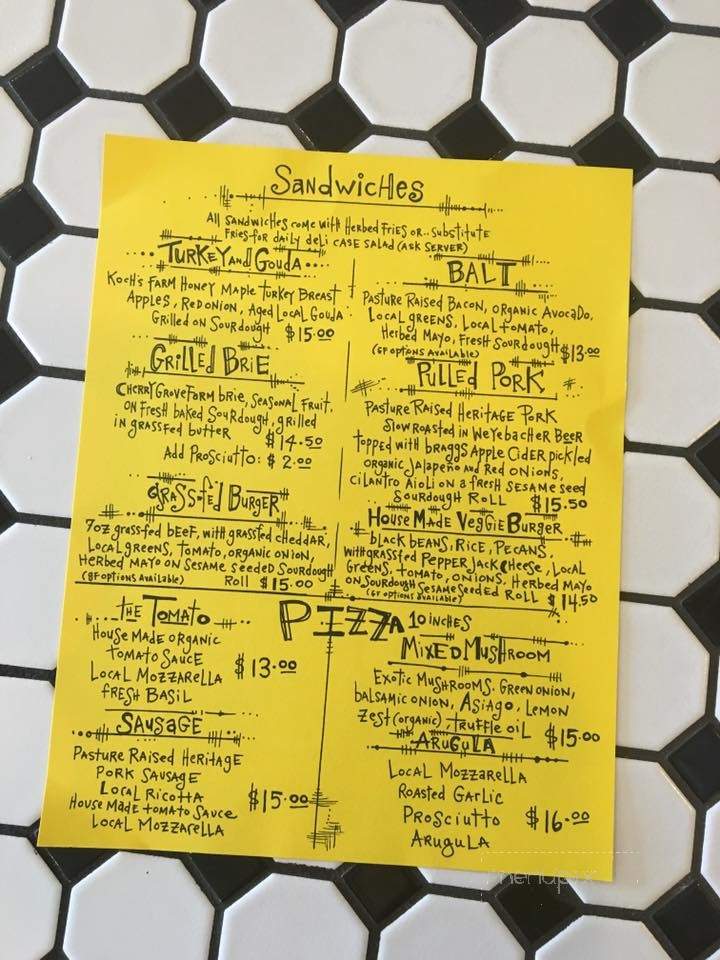 Sandwiches
All Sandwiches come with Herbed Fries or.. Substitute
Fries for daily deli case salad (ask server)
Turkey and Gouda
Koch's Farm Honey Maple Turkey Breast
Apples, Red Onion, Aged Local Gouda
Grilled on Sourdough $15.00
Grilled Brie
Cherry Grove Farm brie, Seasonal Fruit,
on Fresh baked Sourdough, grilled
in grassfed butter $14.50
Add Prosciutto: $2.00
Grass-fed Burger
7oz grass-fed beef, with grassfed cheddar,
Local greens, tomato, organic onion,
Herbed Mayo on Sesame Seeded Sourdough
(gf options available) Roll $15.00
BALT
Pasture Raised Bacon, Organic Avocado,
Local greens, Local tomato,
Herbed Mayo, Fresh Sourdough $13.00
(GF options available)
Pulled Pork
Pasture Raised Heritage Pork
Slow Roasted in Weyebacher Beer
topped with braggs Apple Cider pickled
organic Jalapeño and Red Onions,
Cilantro Aioli on a fresh Sesame seed
Sourdough Roll $15.50
House Made Veggie Burger
black beans, Rice, Pecans,
with grassfed Pepper Jack Cheese, Local
Greens, tomato, onions, Herbed Mayo
on Sourdough Sesame Seeded Roll $14.50
(GF options available)
PIZZA 10 inches
the Tomato
House Made Organic
Tomato Sauce
Local Mozzarella $13.00
Fresh Basil
Sausage
Pasture Raised Heritage
Pork Sausage
Local Ricotta $15.00
House Made tomato Sauce
Local Mozzarella
Mixed Mushroom
Exotic Mushrooms, Green Onion,
balsamic onion, Asiago, Lemon
Zest (organic), truffle oil $15.00
Arugula
Local Mozzarella
Roasted Garlic
Prosciutto $16.00
Arugula
menupix